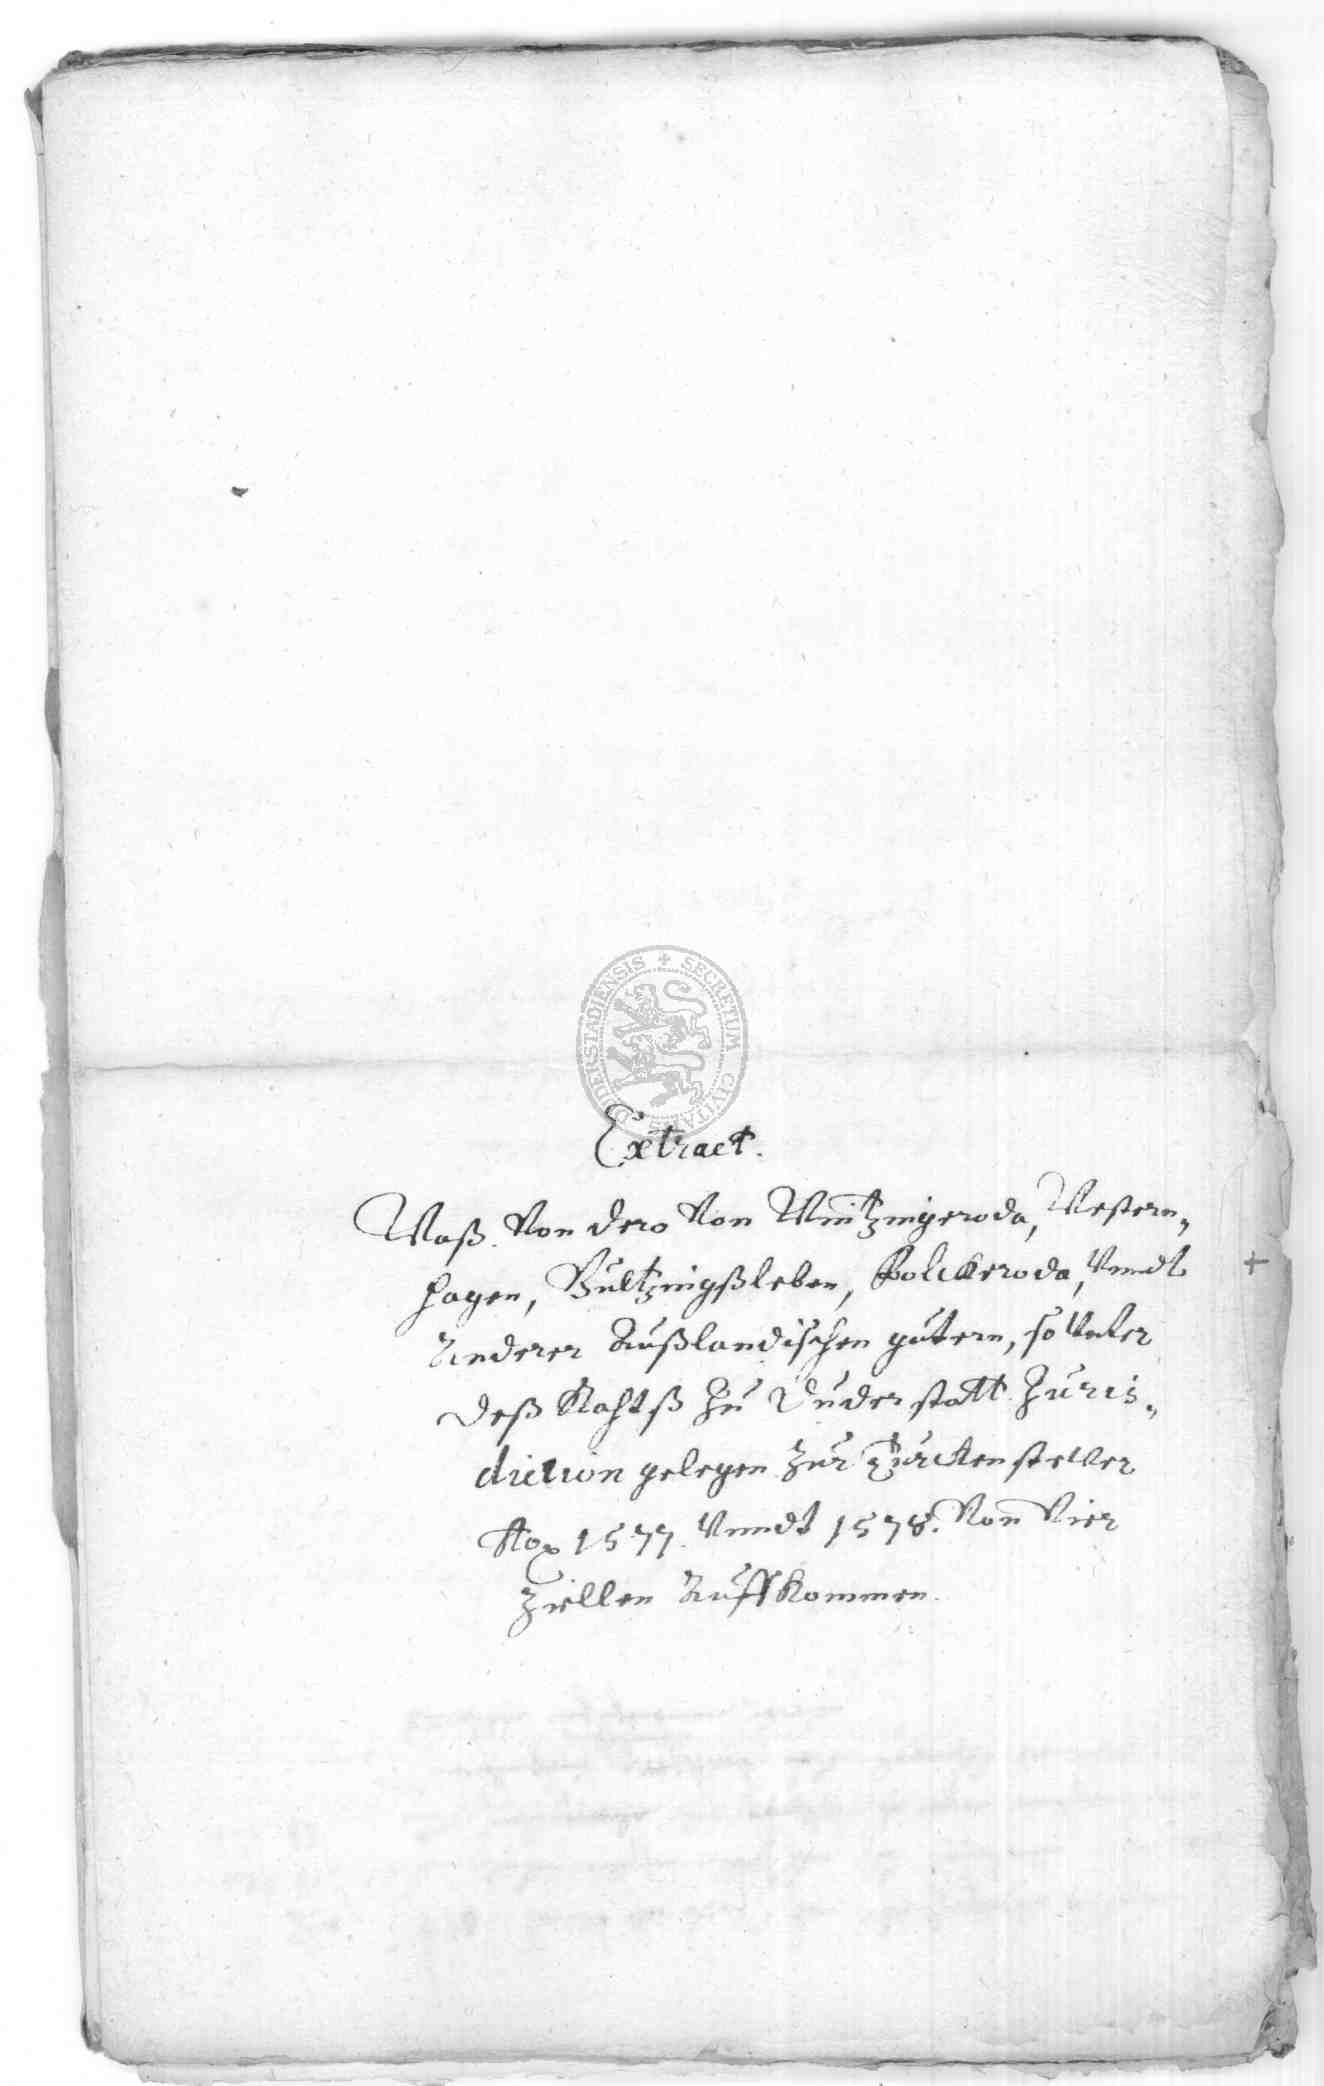 SECRETUM CIVITATIS DUDERSTADIENSIS
Extract.
Waß Von dero Von Wintzingeroda, Western-
hagen, Bultzingßleben, Bolckeroda, Vnndt
Anderer Außlandischen gütern, so Vnter
deß Rahtß zu Duderstatt Juris-
diction gelegen zur Türcken stewer
Ao 1577. Vnndt 1578. Von Vier
Ziellen Auffkommen.